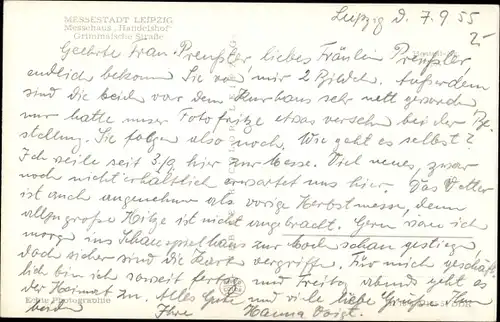 MESSESTADT LEIPZIG
Messehaus „Handelshof“
Grimmaische Straße
Leipzig d. 7.9.55
Geehrte Frau Preußler, liebes Fräulein Preußler,
endlich bekommen Sie von mir 2 Bilder. Außerdem
sind die beiden vor dem Kurhaus sehr nett geworden
nur hatte unser Fotofritze etwas versehen bei der Be-
stellung. Sie folgen also noch. Wie geht es selbst?
Ich weile seit 3/9 hier zur Messe. Viel neues, zwar
noch nicht erhältlich erwartet uns hier. Das Wetter
ist auch angenehmer als vorige Herbstmesse, denn
allzugroße Hitze ist nicht angebracht. Gern wär ich
morgen ins Schauspielhaus zur Modenschau gestiegen
doch sicher sind die Karten vergriffen. Für mich geschäft-
lich bin ich soweit fertig und Freitag abend geht es
der Heimat zu. Alles Gute und viele liebe Grüße Ihnen
beiden Ihre Hanna Voigt.
Echte Photographie